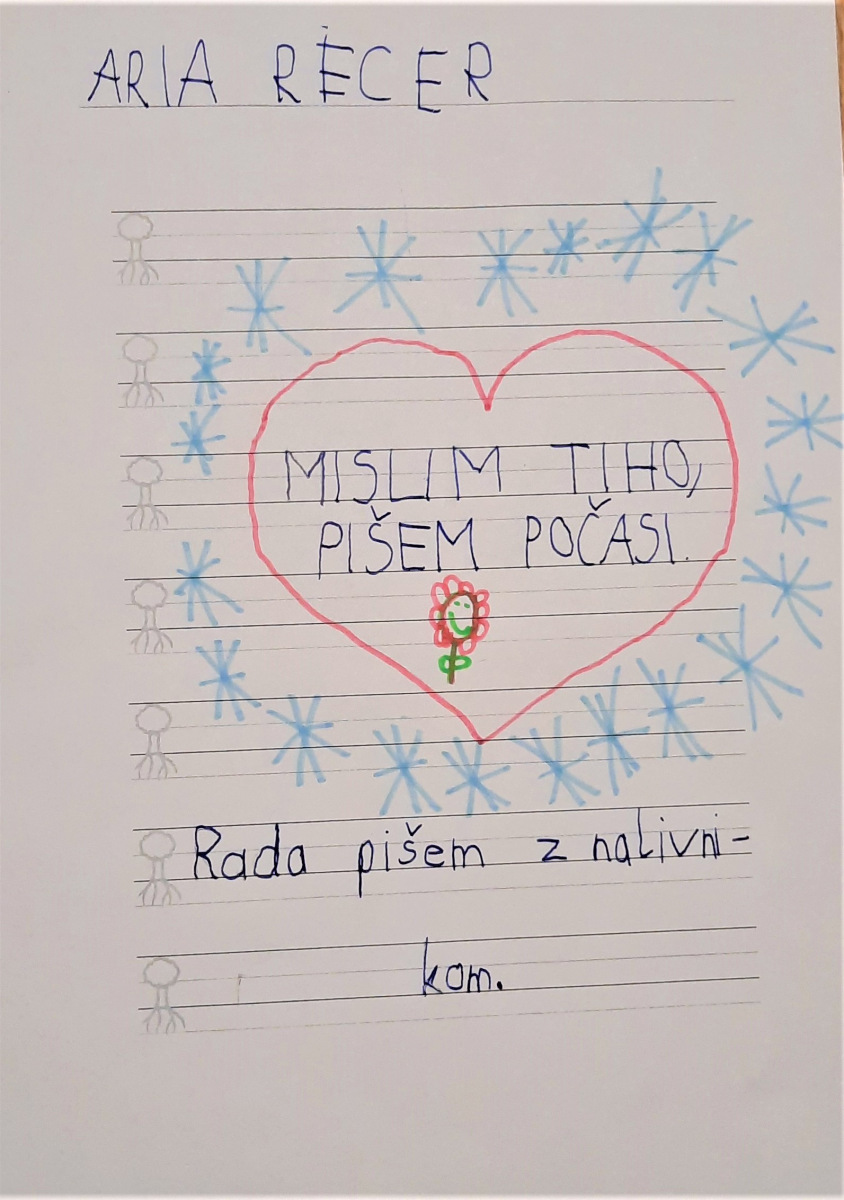 ARIA RECER
MISLIM TIHO,
PIŠEM POČASI.
Rada pišem z nalivni-
kom.